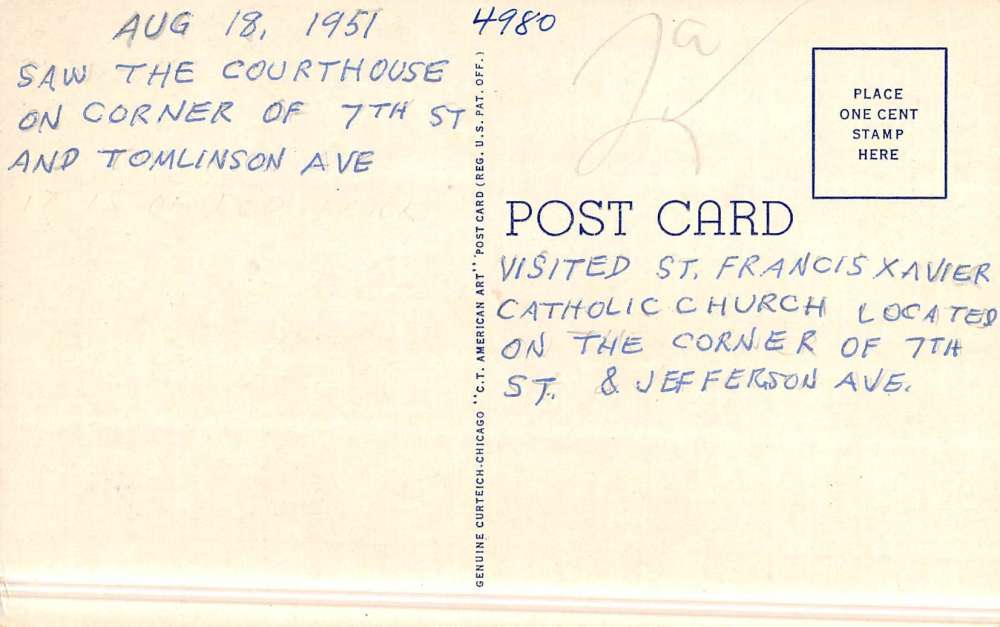 AUG 18, 1951
SAW THE COURTHOUSE
ON CORNER OF 7TH ST
AND TOMLINSON AVE
4980
GENUINE CURTEICH-CHICAGO "C.T. AMERICAN ART" POST CARD (REG. U.S. PAT. OFF.)
PLACE
ONE CENT
STAMP
HERE
POST CARD
VISITED ST. FRANCIS XAVIER
CATHOLIC CHURCH LOCATED
ON THE CORNER OF 7TH
ST. & JEFFERSON AVE.